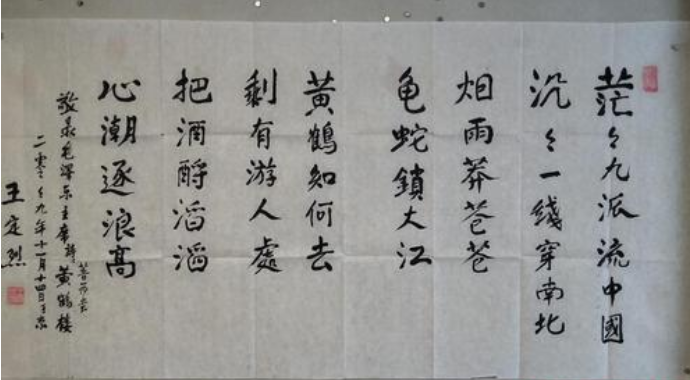 茫々九派流中國
沉々一线穿南北
烟雨莽苍苍
龟蛇鎖大江
黄鶴知何去
剩有游人處
把酒酹滔滔
心潮逐浪高
敬录毛澤东主席詩菩萨蛮黄鹤楼
二零零九年十一月十四日于京
王定烈